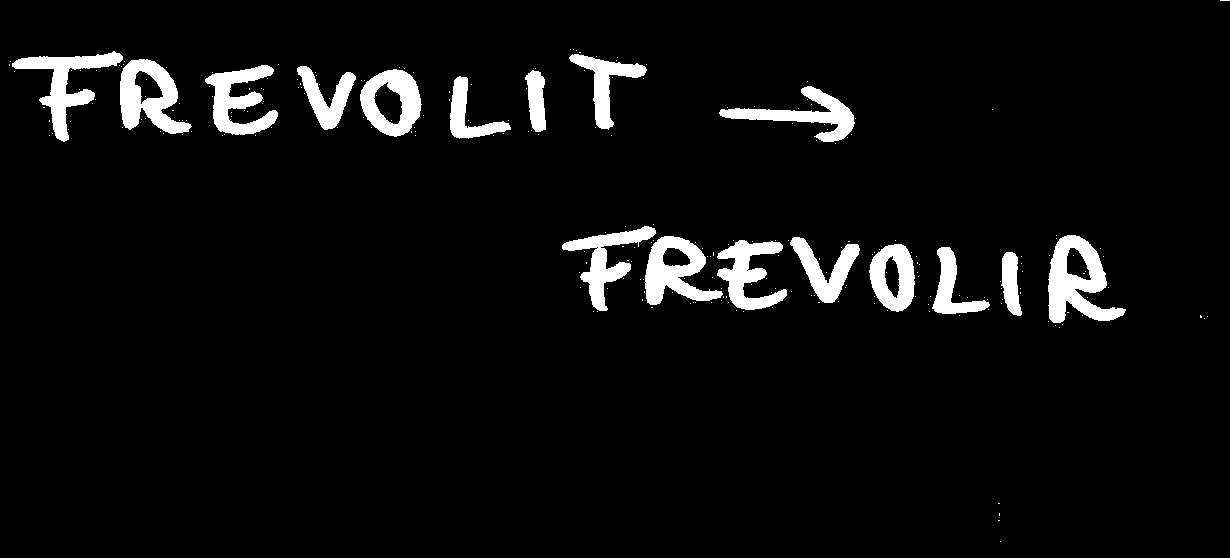 FREVOLIT →
FREVOLIR